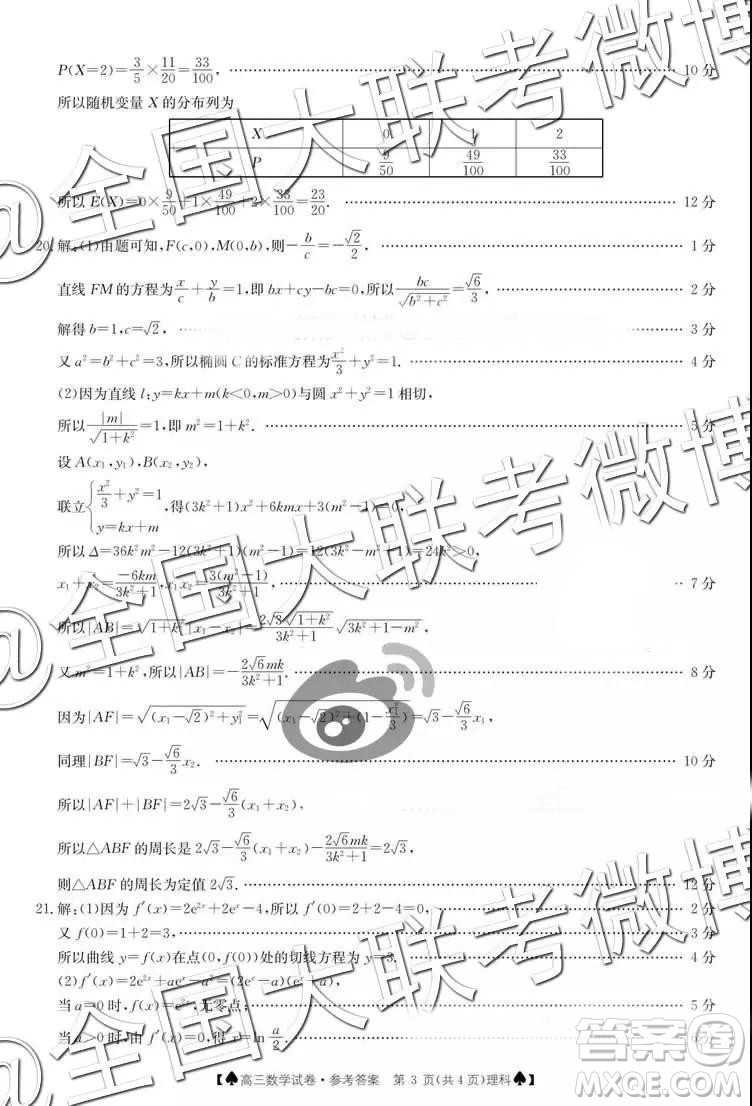 P(X=2)=3/5×11/20=33/100. 10 分
所以随机变量 X 的分布列为
X 0 1 2
P 9/50 49/100 33/100
所以 E(X)=0×9/50+1×49/100+2×33/100=23/20. 12 分
20. 解:(1)由题可知,F(c,0),M(0,b),则-b/c=-√2/2, 1 分
直线 FM 的方程为x/c+y/b=1,即 bx+cy-bc=0,所以bc/√(b²+c²)=√6/3, 2 分
解得 b=1,c=√2, 3 分
又 a²=b²+c²=3,所以椭圆 C 的标准方程为x²/3+y²=1. 4 分
(2)因为直线 l:y=kx+m(k<0,m>0)与圆 x²+y²=1 相切,
所以|m|/√(1+k²)=1,即 m²=1+k². 5 分
设 A(x₁,y₁),B(x₂,y₂),
联立{x²/3+y²=1
y=kx+m,得(3k²+1)x²+6kmx+3(m²-1)=0,
所以 Δ=36k²m²-12(3k²+1)(m²-1)=12(3k²-m²+1)=24k²>0,
x₁+x₂=-6km/(3k²+1),x₁x₂=3(m²-1)/(3k²+1), 7 分
所以|AB|=√(1+k²)|x₁-x₂|=2√3√(1+k²)/(3k²+1)√(3k²+1-m²),
又 m²=1+k²,所以|AB|=-2√6mk/(3k²+1). 8 分
因为|AF|=√((x₁-√2)²+y₁²)=√((x₁-√2)²+(1-x₁²/3))=√3-√6/3x₁,
同理|BF|=√3-√6/3x₂. 10 分
所以|AF|+|BF|=2√3-√6/3(x₁+x₂),
所以△ABF 的周长是 2√3-√6/3(x₁+x₂)-2√6mk/(3k²+1)=2√3,
则△ABF 的周长为定值 2√3. 12 分
21. 解:(1)因为 f′(x)=2e²ˣ+2eˣ-4,所以 f′(0)=2+2-4=0, 2 分
又 f(0)=1+2=3,
所以曲线 y=f(x)在点(0,f(0))处的切线方程为 y=3. 4 分
(2)f′(x)=2e²ˣ+aeˣ-a²=(2eˣ-a)(eˣ+a),
当 a=0 时,f(x)=e²ˣ,无零点; 5 分
当 a>0 时,由 f′(x)=0,得 x=ln a/2. 分
【♠高三数学试卷·参考答案 第 3 页(共 4 页)理科♠】
@全国大联考微博
@全国大联考微博
答案卷